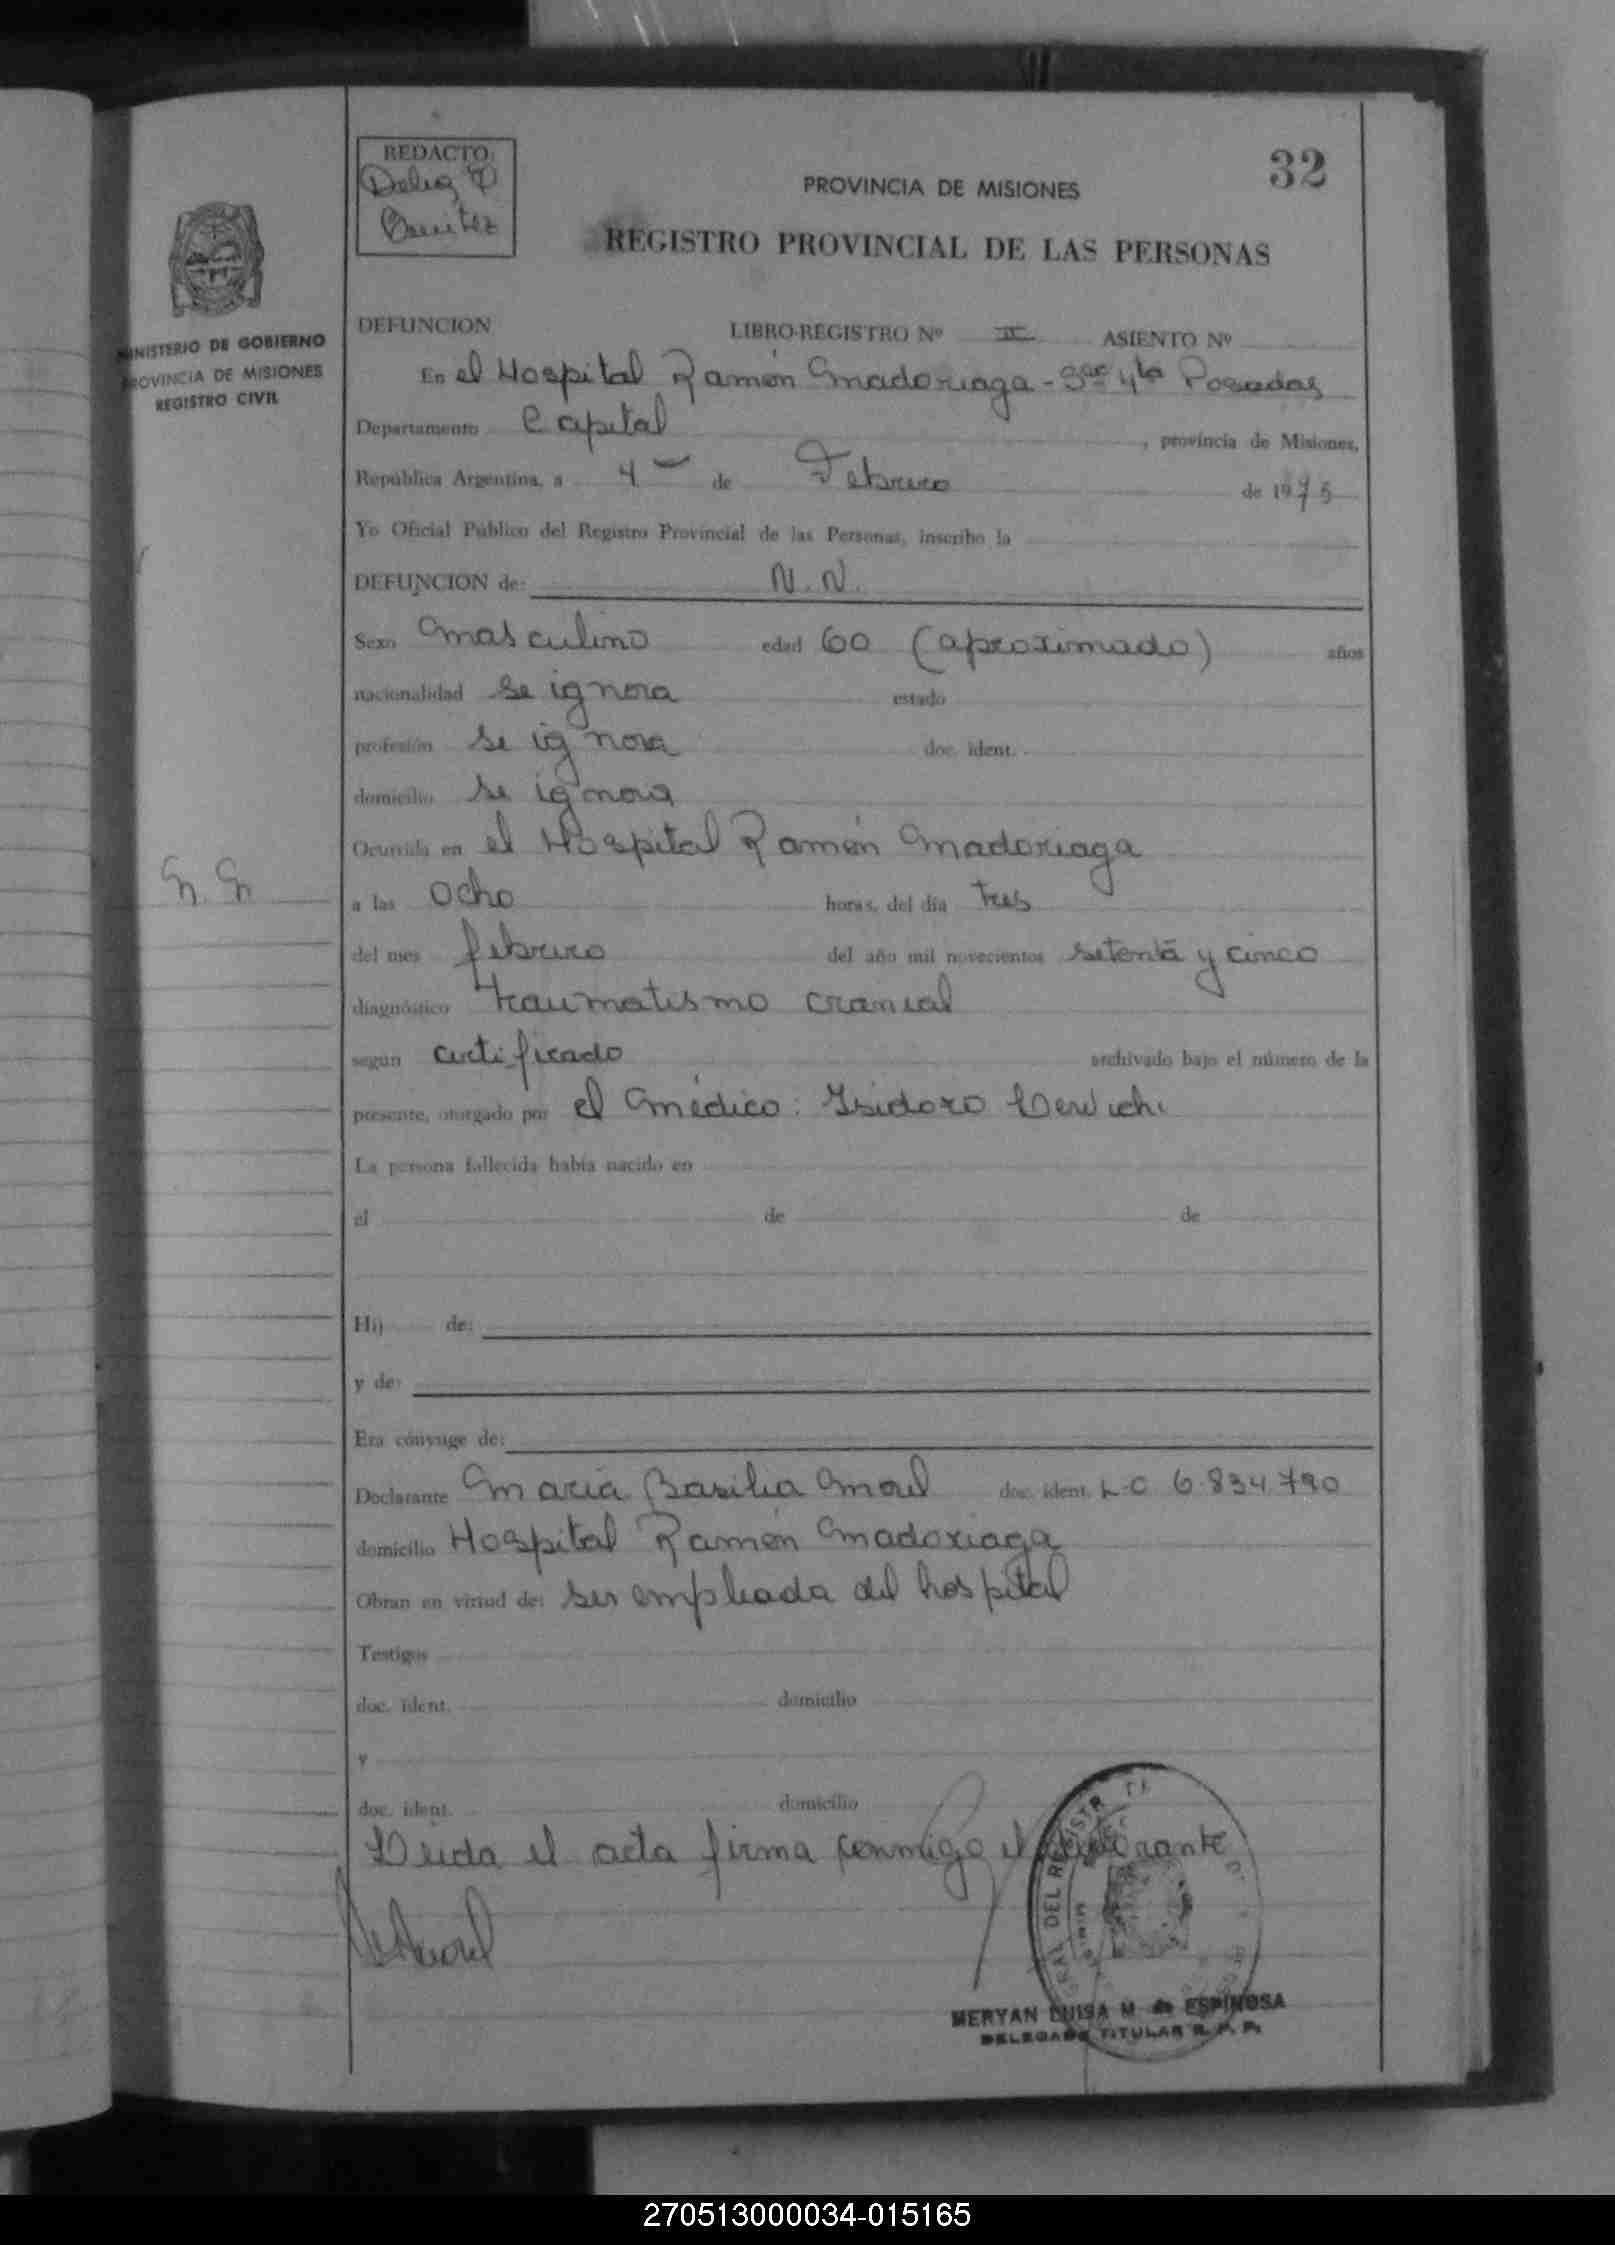 32
REDACTO:
Delia
Benitez
PROVINCIA DE MISIONES
REGISTRO PROVINCIAL DE LAS PERSONAS
MINISTERIO DE GOBIERNO
PROVINCIA DE MISIONES
REGISTRO CIVIL
DEFUNCION LIBRO-REGISTRO Nº II ASIENTO Nº
En el Hospital Ramón Madoriaga - Posadas
Departamento Capital , provincia de Misiones,
República Argentina, a 4 de Febrero de 1975
Yo Oficial Público del Registro Provincial de las Personas, inscribo la
DEFUNCION de: N.N.
Sexo Masculino edad 60 (aproximado) años
nacionalidad se ignora estado
profesión se ignora doc. ident.
domicilio se ignora
Ocurrida en el Hospital Ramón Madoriaga
N. N.
a las Ocho horas, del día tres
del mes febrero del año mil novecientos setenta y cinco
diagnóstico traumatismo craneal
según certificado archivado bajo el número de la
presente, otorgado por el Médico: Isidoro
La persona fallecida había nacido en
el de de
Hij de:
y de:
Era cónyuge de:
Declarante María Basilia Morel doc. ident. L-C 6.834.790
domicilio Hospital Ramón Madoriaga
Obran en virtud de: ser empleada del hospital
Testigos
doc. ident. domicilio
y
doc. ident. domicilio
Leída el acta firma conmigo el declarante
MERYAN LUISA M. de ESPINOSA
DELEGADA TITULAR R. P. P.
270513000034-015165